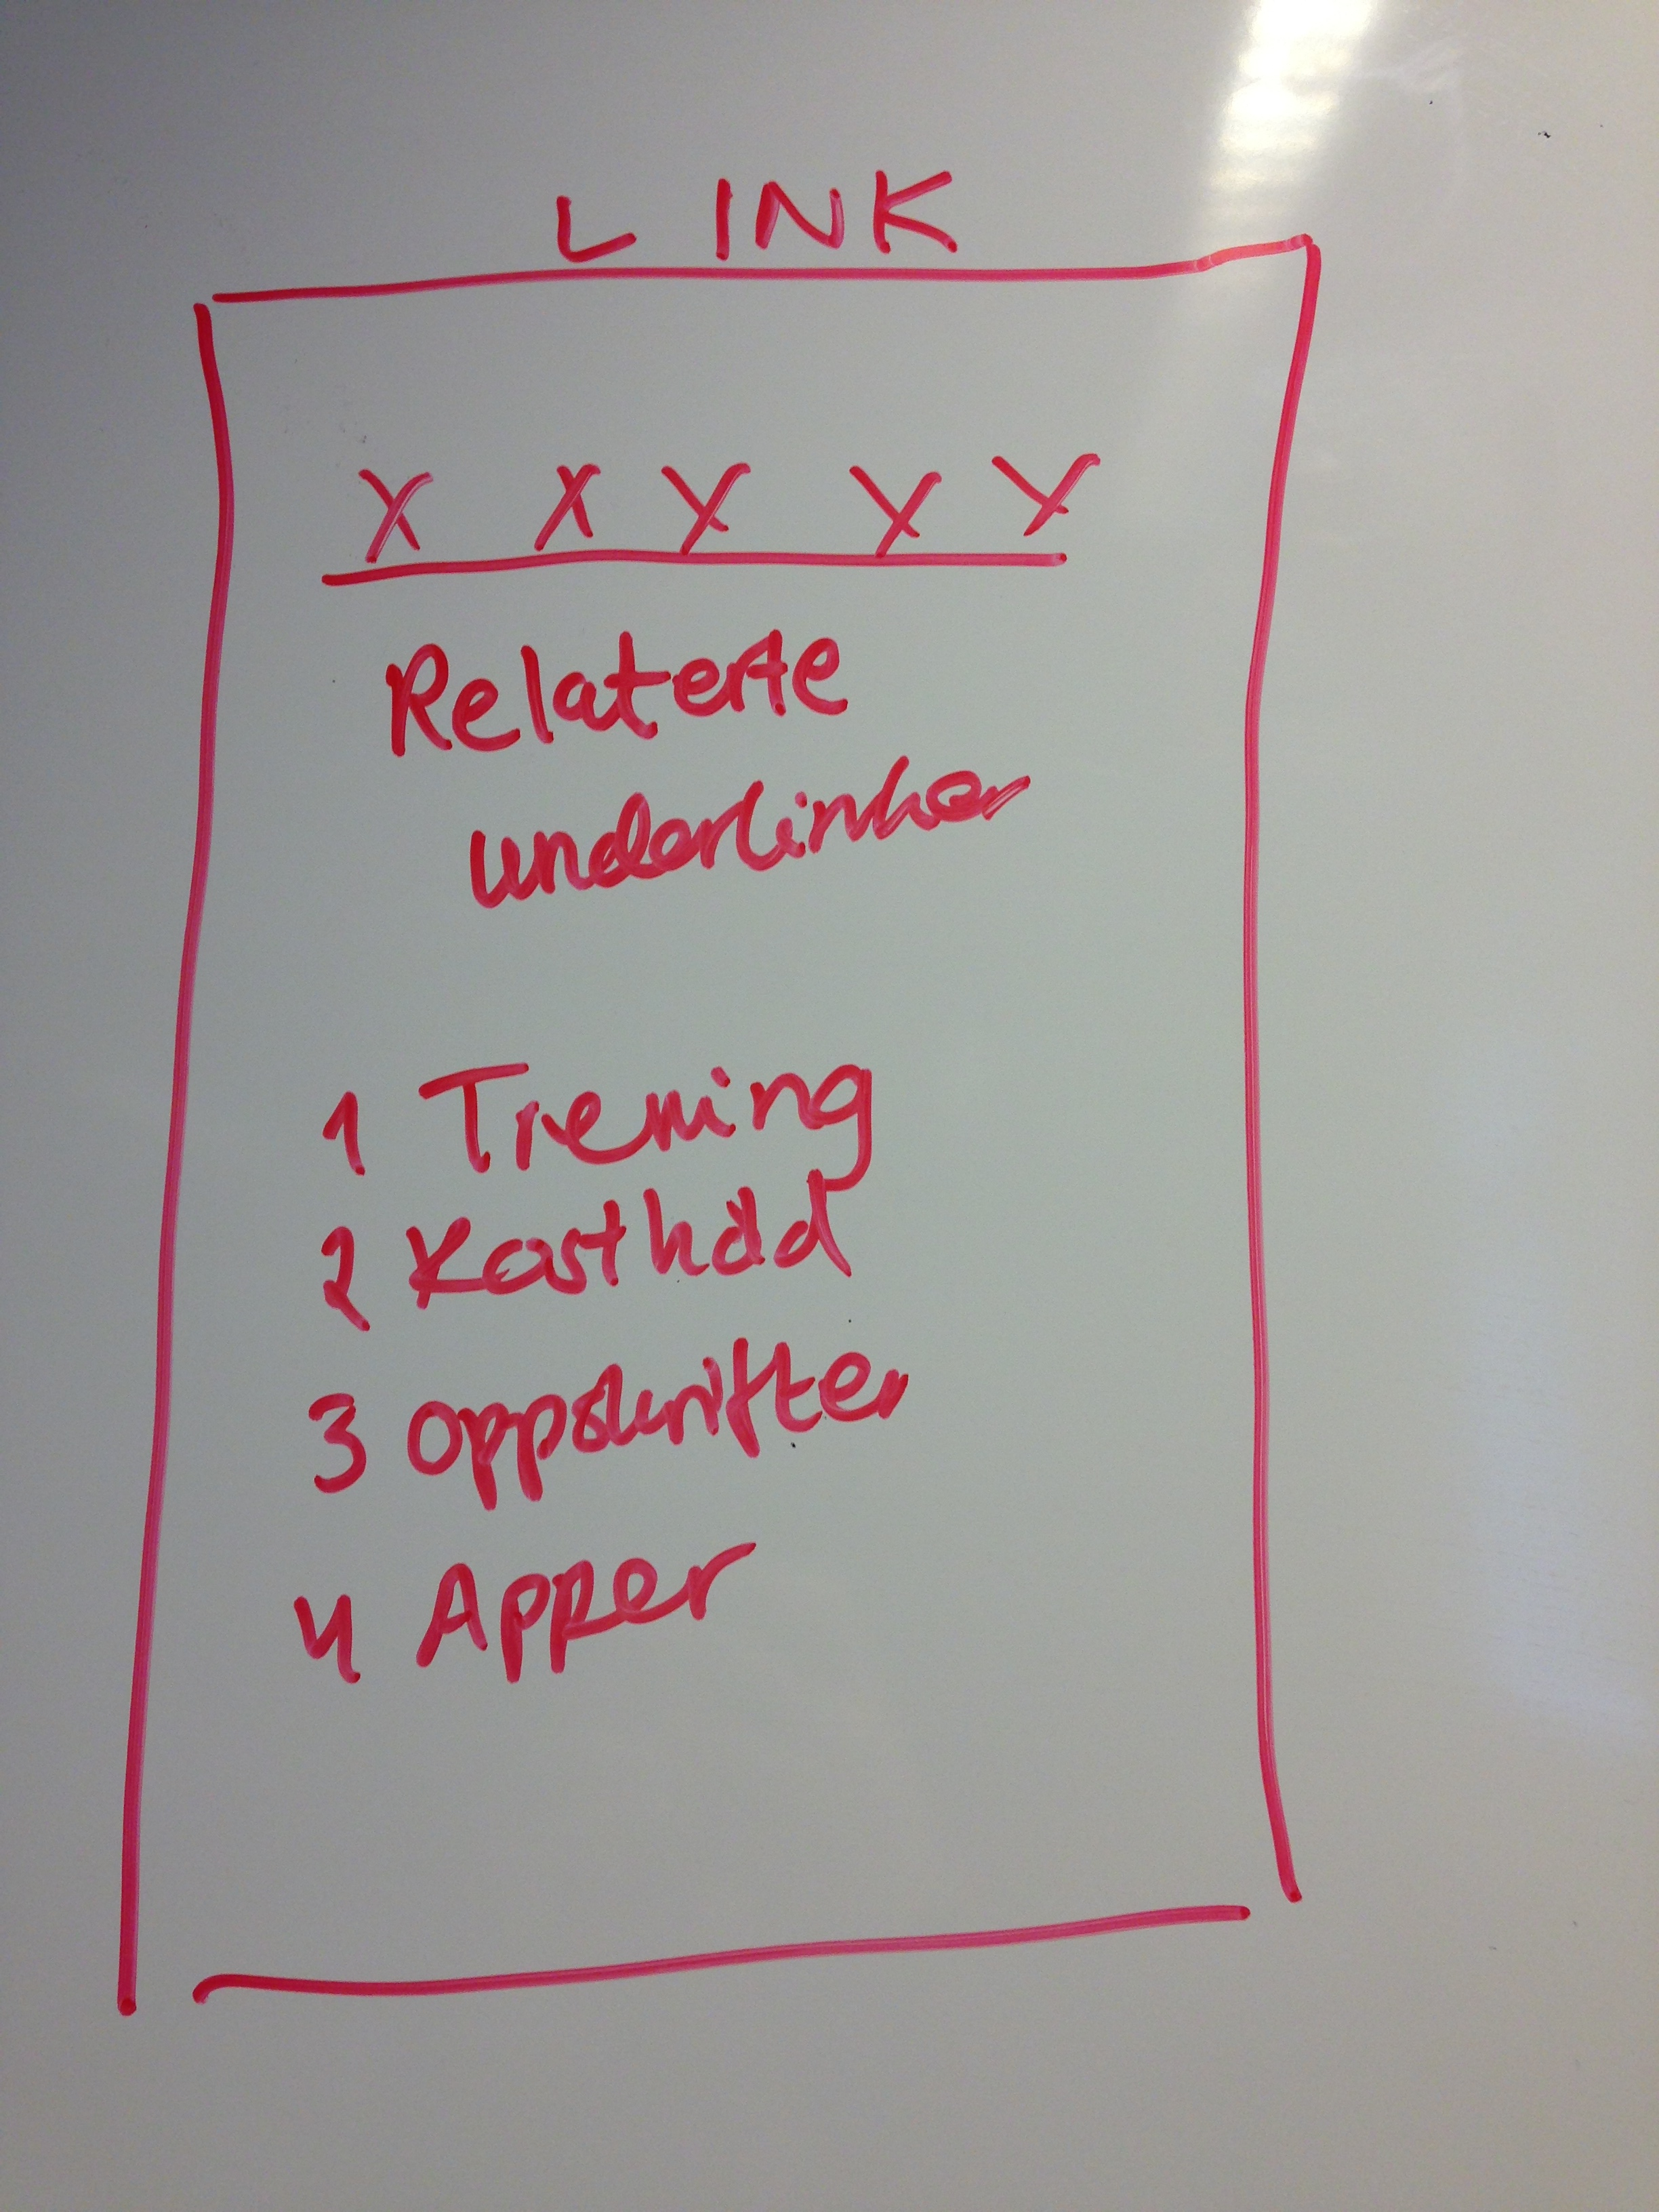 LINK
X X X X X
Relaterte
underlinker
1 Trening
2 Kosthåld
3 Oppskrifter
4 Apper